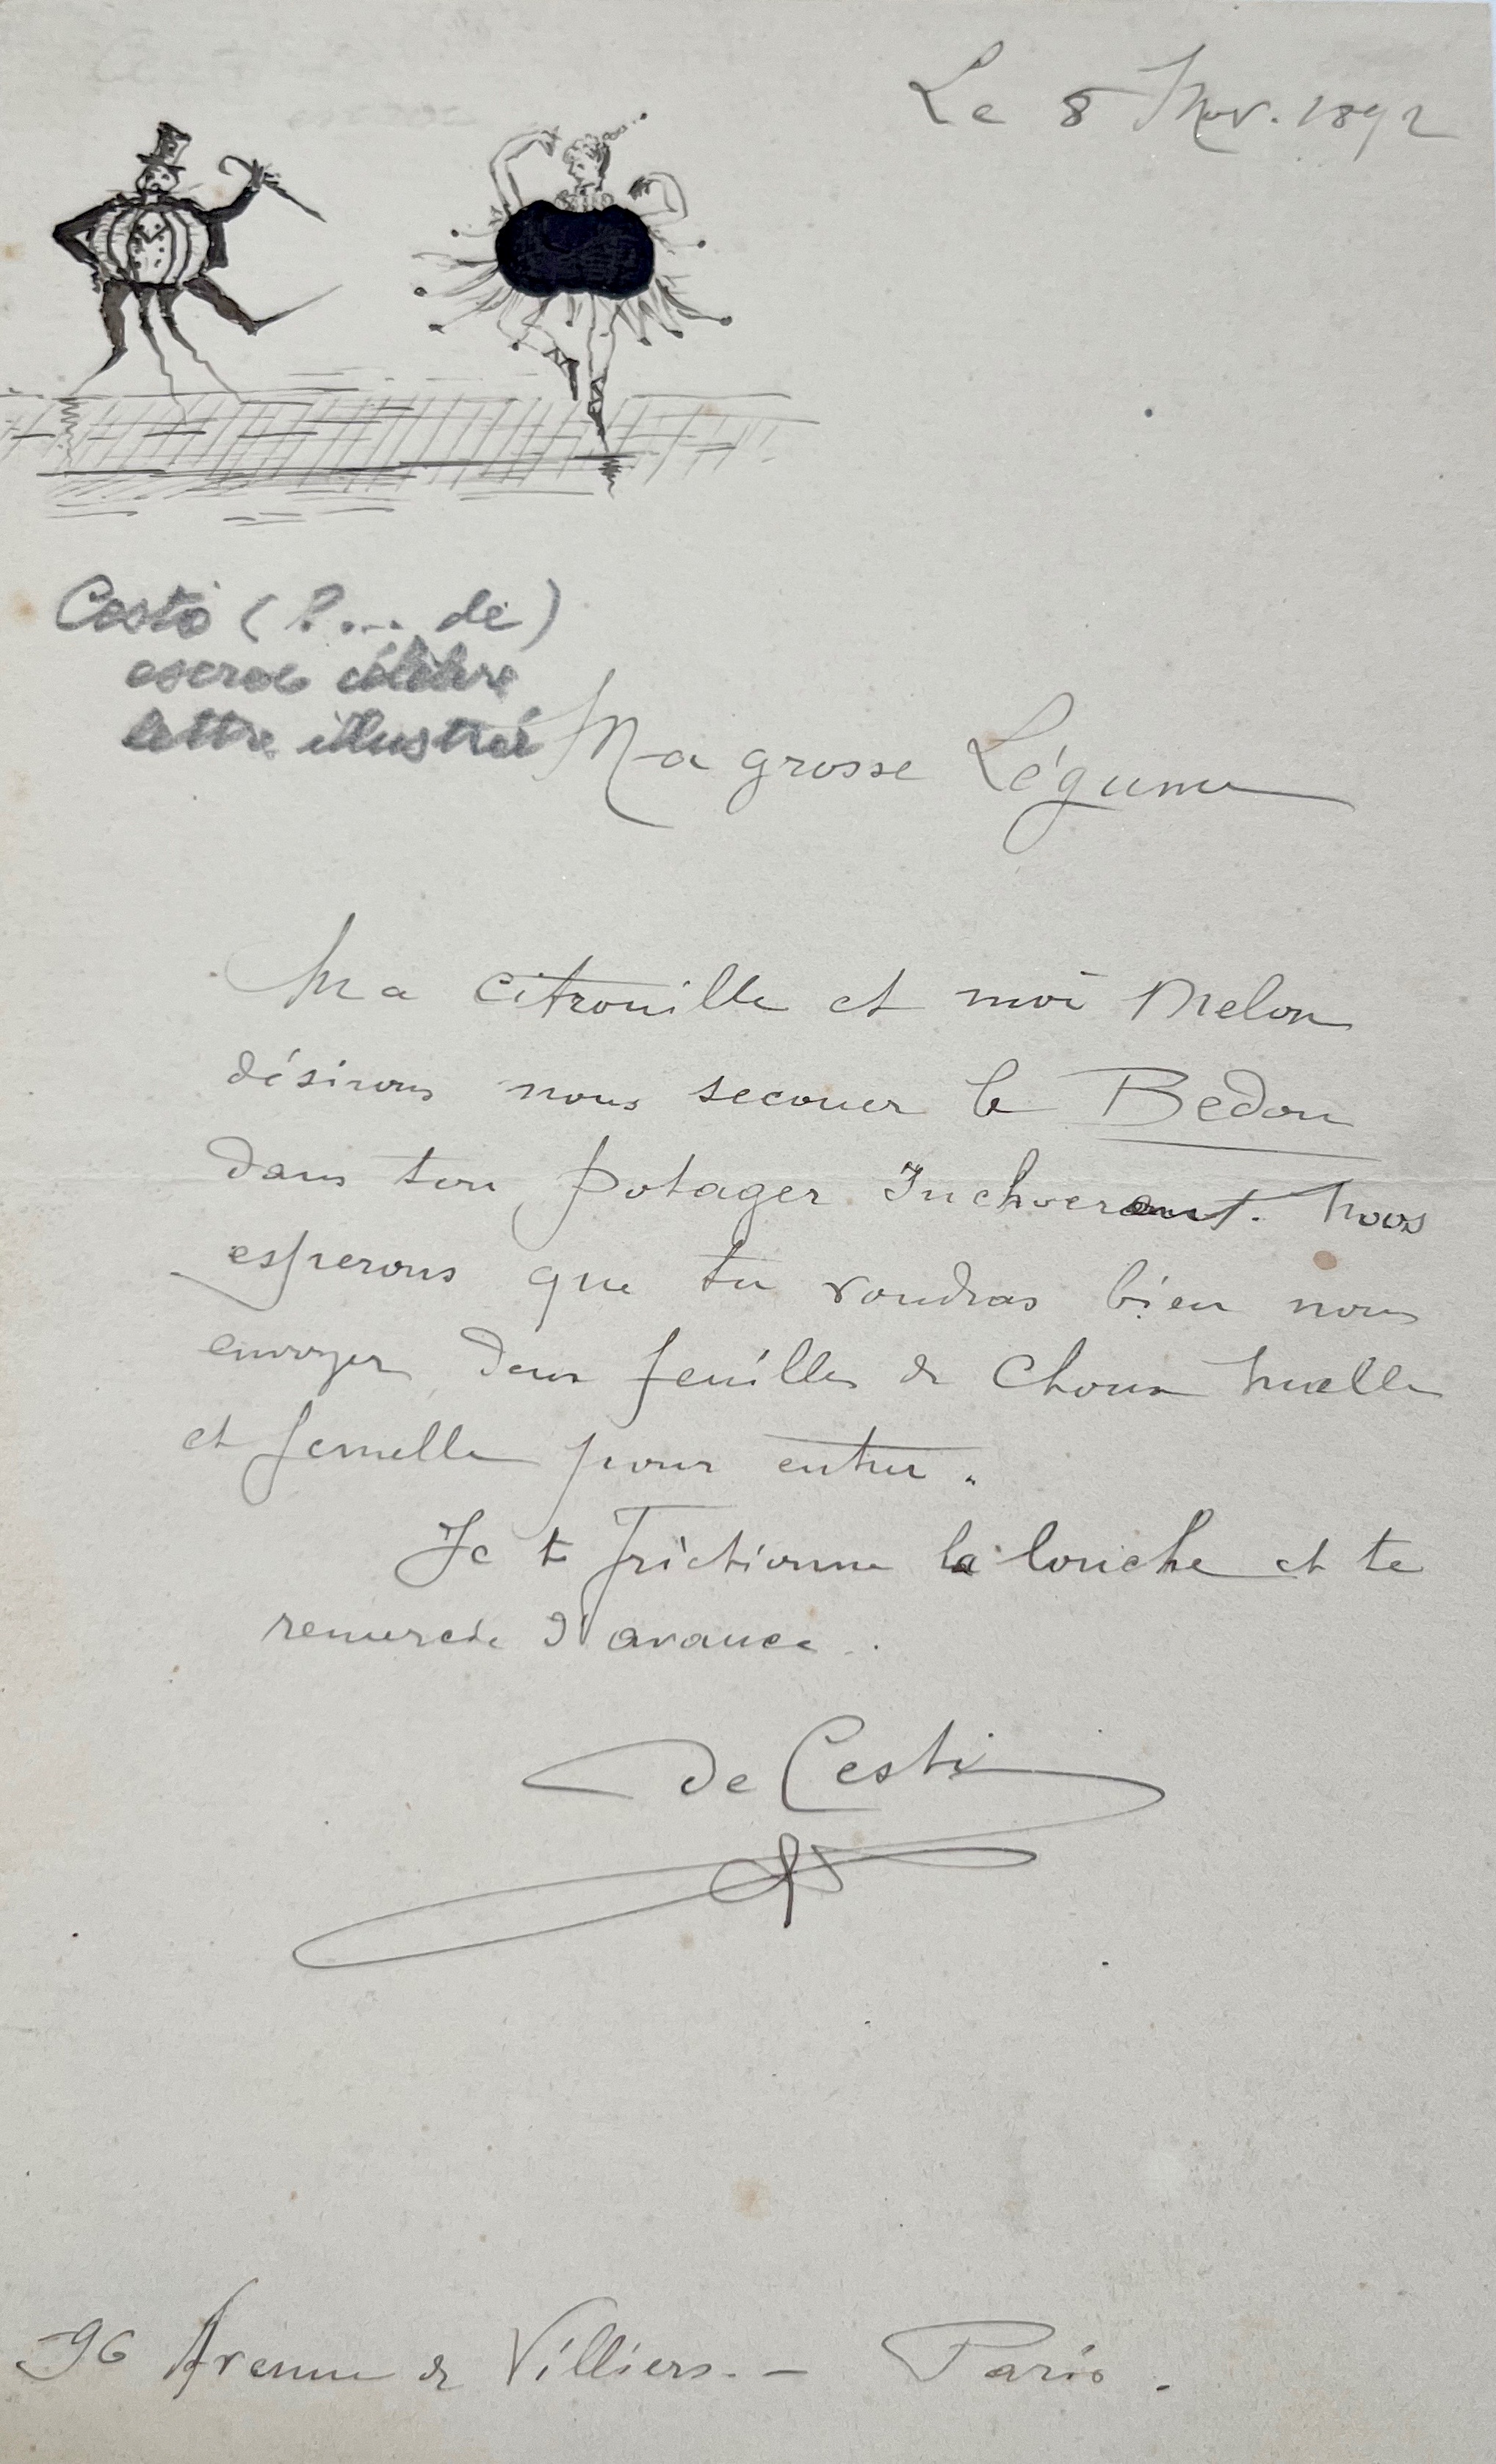 Le 8 Nov. 1892
Costo (?... de)
escroc célèbre
lettre illustrée
Ma grosse Légume
Ma citrouille et moi Melon
désirons nous secouer le Bedon
dans ton potager Inchoerent. Nous
esperons que tu voudras bien nous
envoyer deux feuilles de Choux malle
et femelle pour entrer.
Je te frictionne la louche et te
remercie d'avance.
De Cesti
96 Avenue de Villiers. - Paris.